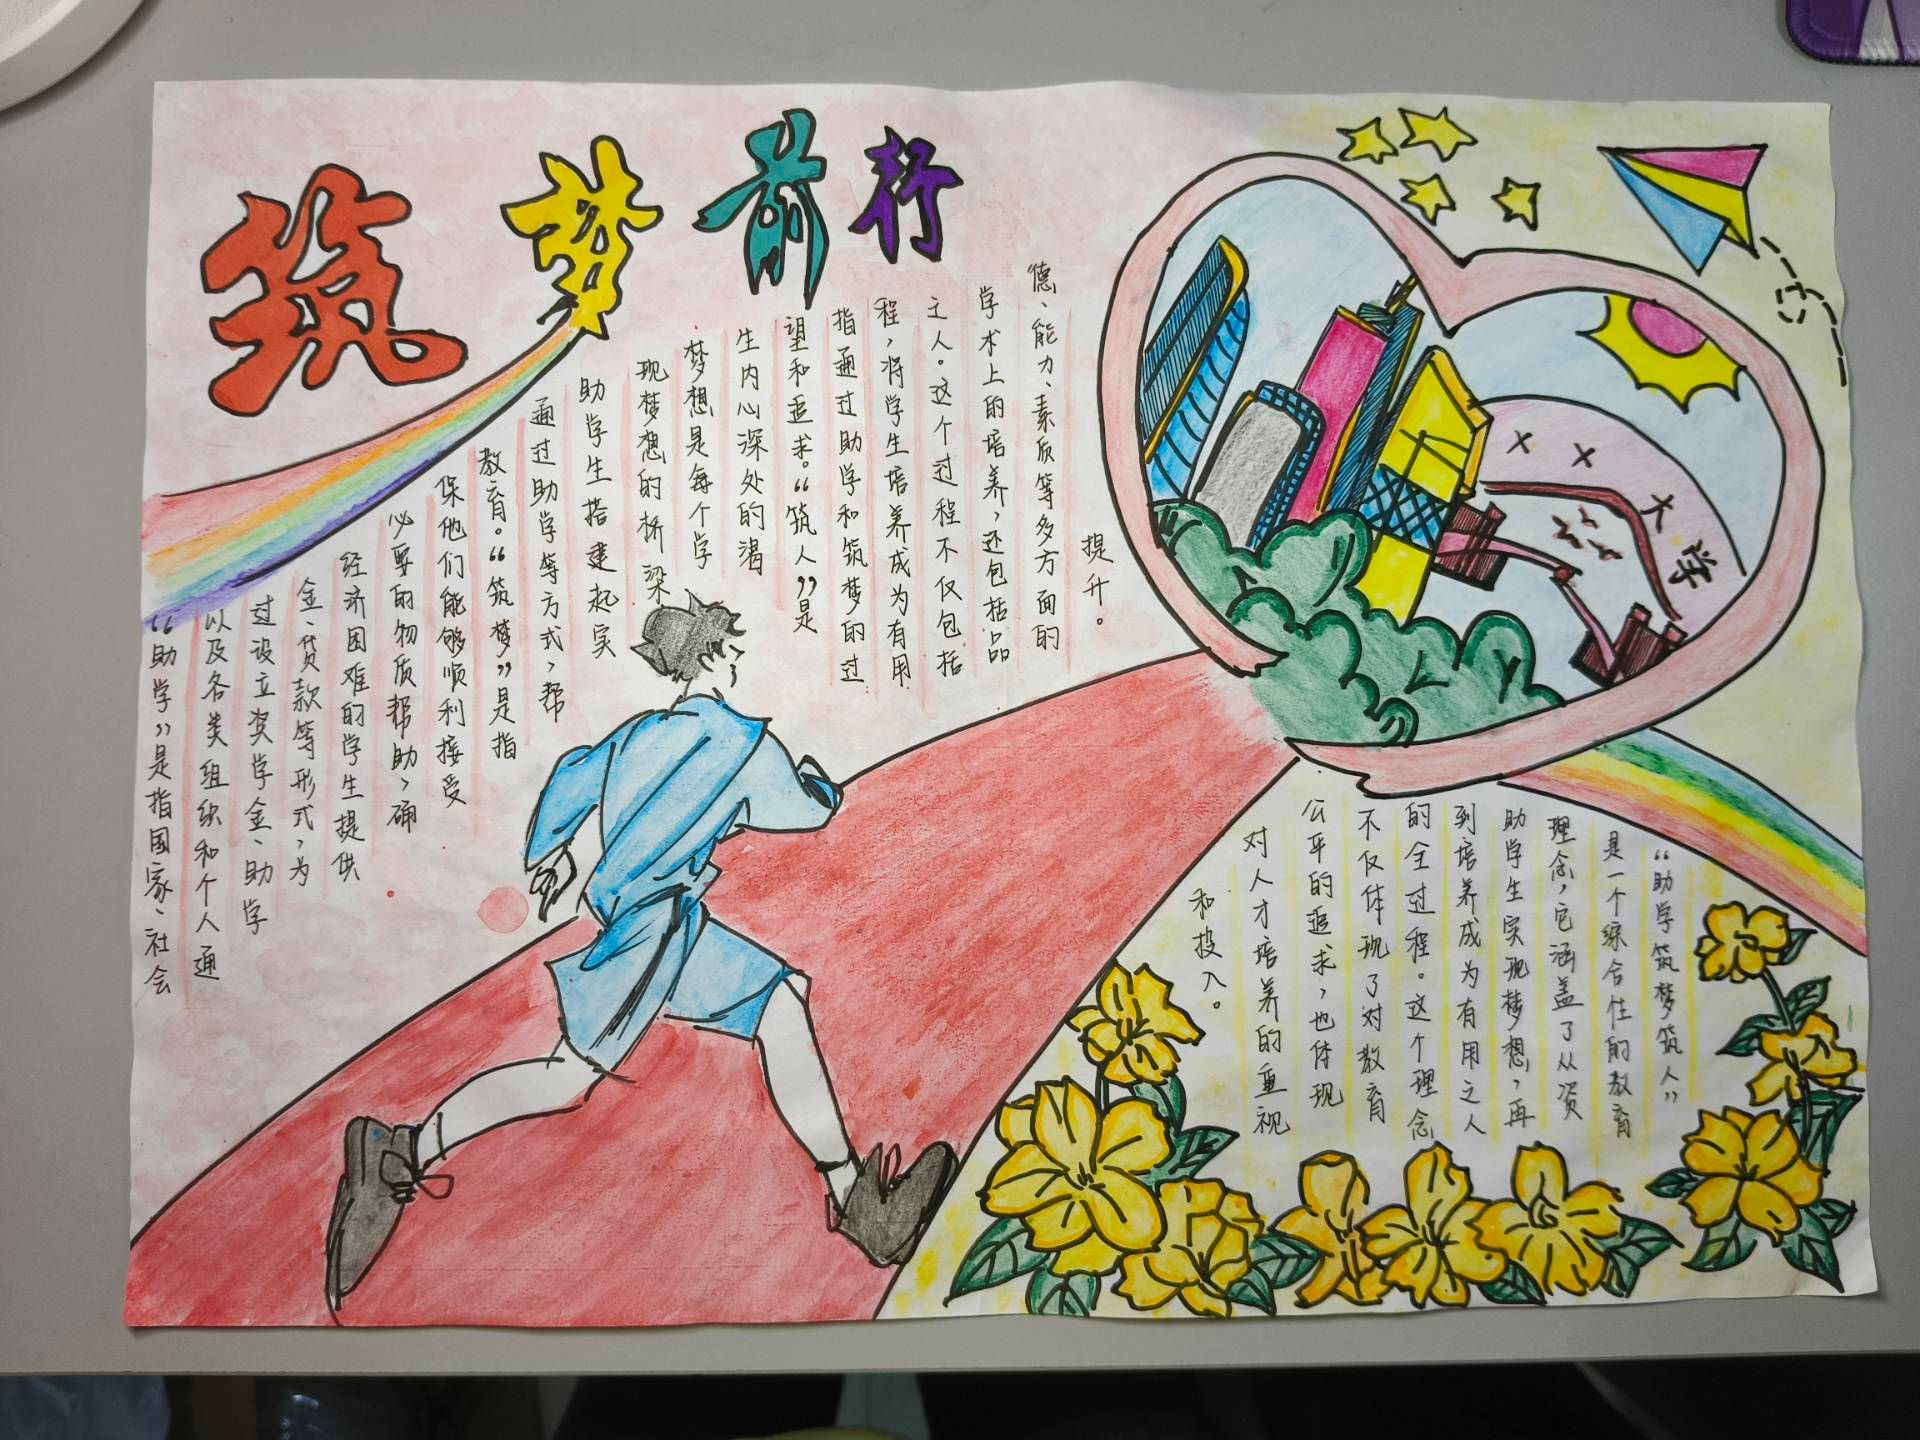 筑梦前行
“助学”是指国家、社会
以及各类组织和个人通
过设立奖学金、助学
金、贷款等形式，为
经济困难的学生提供
必要的物质帮助，确
保他们能够顺利接受
教育。“筑梦”是指
通过助学等方式，帮
助学生搭建起实
现梦想的桥梁
梦想是每个学
生内心深处的渴
望和追求。“筑人”是
指通过助学和筑梦的过
程，将学生培养成为有用
之人。这个过程不仅包括
学术上的培养，还包括品
德、能力、素质等多方面的
提升。
××大学
“助学筑梦筑人”
是一个综合性的教育
理念，它涵盖了从资
助学生实现梦想，再
到培养成为有用之人
的全过程。这个理念
不仅体现了对教育
公平的追求，也体现
对人才培养的重视
和投入。